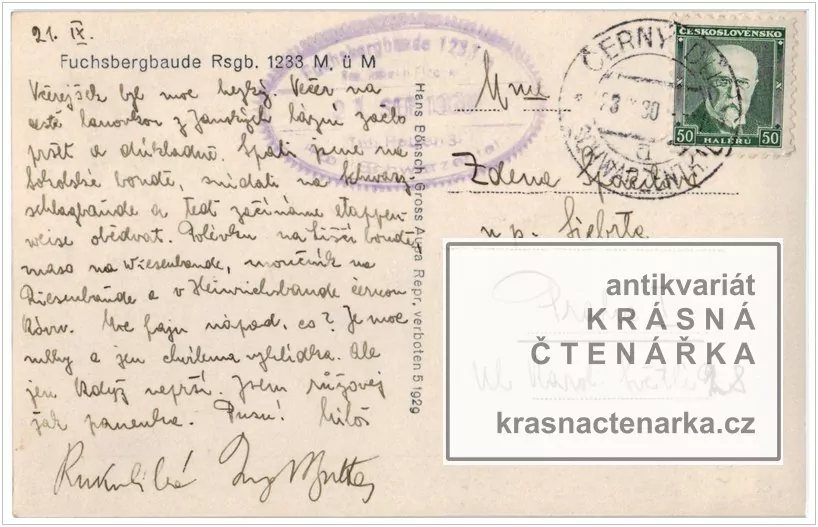 21. IX.
Fuchsbergbaude Rsgb. 1233 M. ü M
Včerejšek byl moc hezký. Večer na
cestě lanovkou z Janských lázní začlo
pršet a důkladně. Spali jsme na
Sokolské boudě, snídali na Schwarz-
schlagbaude a teď začínáme etappen-
weise obědvat. Polévku na Liščí boudě,
maso na Wiesenbaude, moučník na
Riesenbaude a v Heinrichsbaude černou
kávu. Moc fajn nápad, co? Je moc
mlhy a jen chvílema vyhlídka. Ale
jen když neprší. Jsem růžovej
jak panenka. Pusu! Miloš
Rukulíbá
Hans Bönsch, Gross Aupa Repr. verboten 5 1929
Fuchsbergbaude 1233
ČERNÝ DŮL
23 30
a
SCHWARZENTHAL
ČESKOSLOVENSKO
50 HALÉŘŮ 50
Mme
Zdena
n p.
antikvariát
KRÁSNÁ
ČTENÁŘKA
krasnactenarka.cz